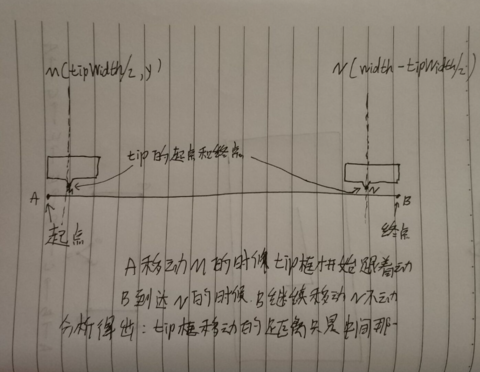 M(tipWidth/2,y)
N(width-tipWidth/2)
tip的起点和终点
M
N
A
B
起点
终点
A移动M的时候tip框开始跟着动
B到达N的时候.B继续移动N不动
分析得出:tip框移动的距离只是中间那一